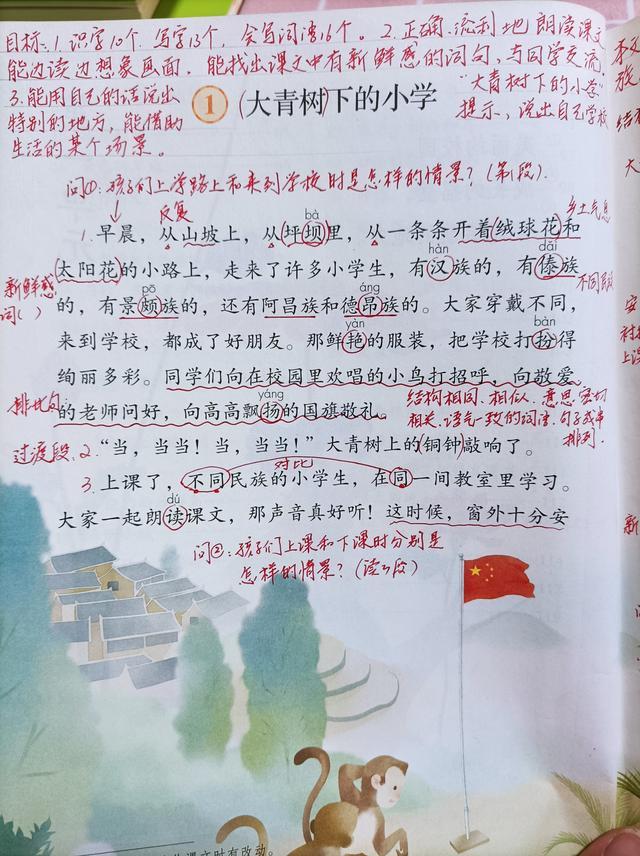 目标:1.识字10个.写字13个,会写词语16个。2.正确.流利地朗读课文
能边读边想象画面,能找出课文中有新鲜感的词句,与同学交流.
3.能用自己的话说出“大青树下的小学”
特别的地方,能借助提示,说出自己学校
生活的某个场景。
1 (大青树)下的小学
问①:孩子们上学路上和来到学校时是怎样的情景?(第1段).
反复
乡土气息
bà
1.早晨,从山坡上,从坪坝里,从一条条开着绒球花和
hàn dǎi
太阳花的小路上,走来了许多小学生,有汉族的,有傣族
不同民族
新鲜感
词( )
pō áng
的,有景颇族的,还有阿昌族和德昂族的。大家穿戴不同,
yàn bàn
来到学校,都成了好朋友。那鲜艳的服装,把学校打扮得
绚丽多彩。同学们向在校园里欢唱的小鸟打招呼,向敬爱
排比句
yáng
的老师问好,向高高飘扬的国旗敬礼。
结构相同.相似.意思密切
相关.语气一致的词语.句子成串
排列.
过渡段:2.“当,当当!当,当当!”大青树上的(铜钟)敲响了。
对比
3.上课了,不同民族的小学生,在同一间教室里学习。
dú
大家一起朗读课文,那声音真好听!这时候,窗外十分安
问②:孩子们上课和下课时分别是
怎样的情景?(读3段)
课文时有改动。